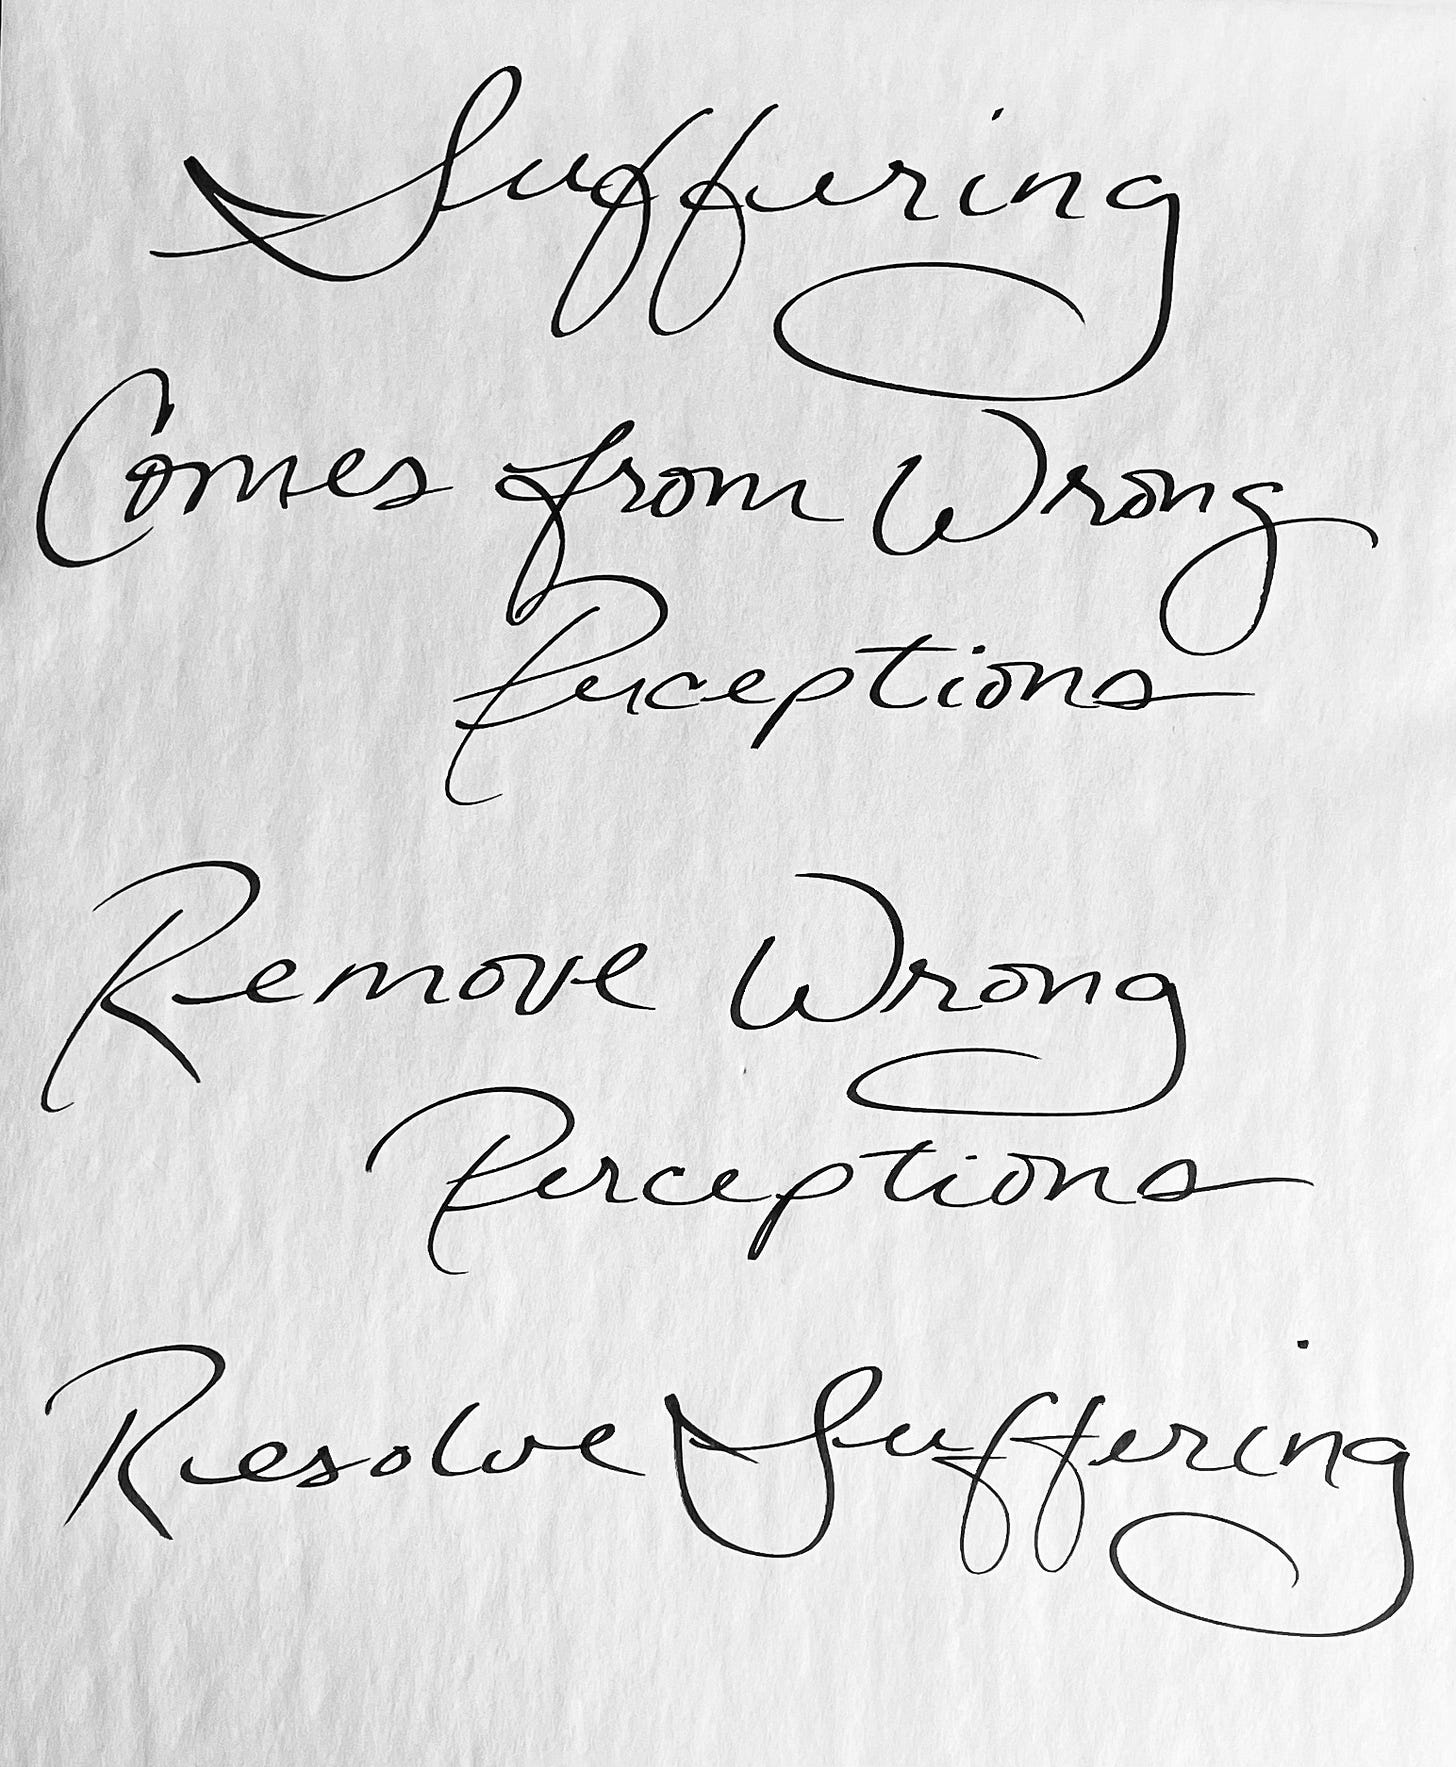 Suffering
Comes from Wrong
Perceptions
Remove Wrong
Perceptions
Resolve Suffering